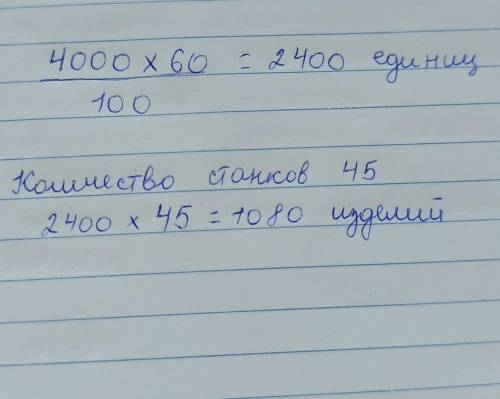 4000 x 60 = 2400 единиц
100
Количество станков 45
2400 x 45 = 1080 изделий